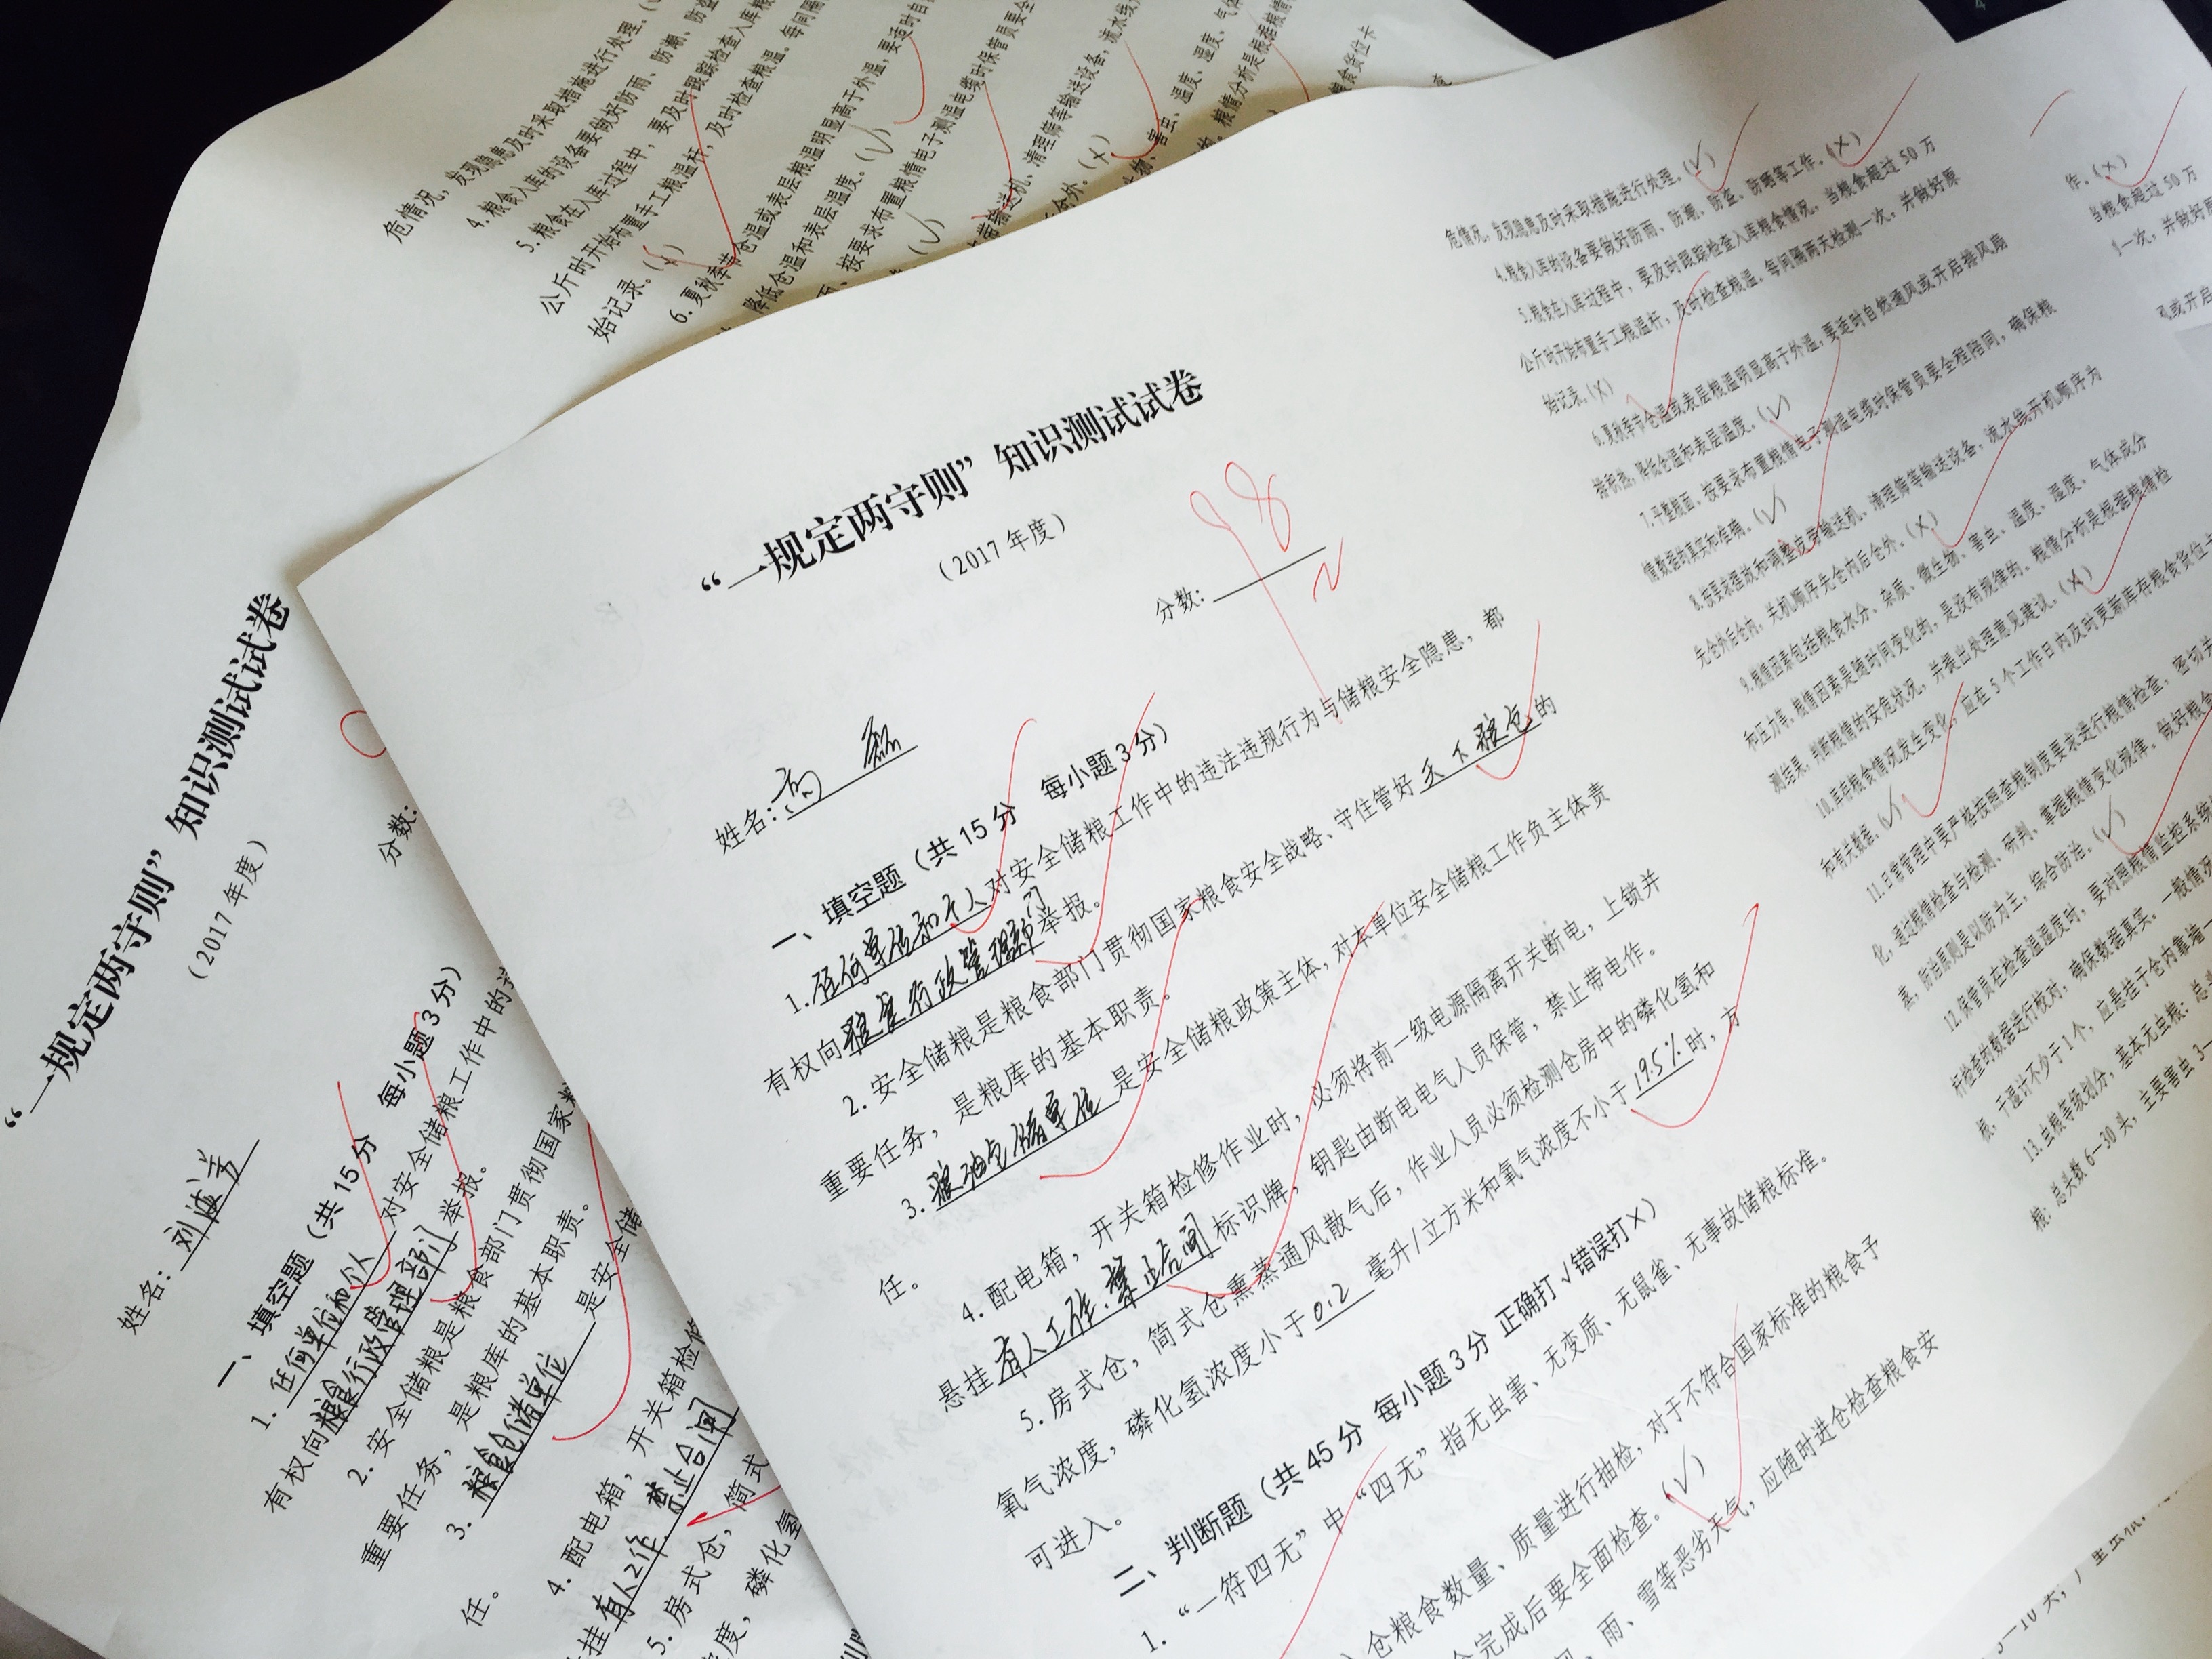 “一规定两守则”知识测试试卷
（2017 年度）
分数：
98
姓名：高磊
一、填空题（共 15 分 每小题 3 分）
1. 任何单位和个人对安全储粮工作中的违法违规行为与储粮安全隐患，都
有权向粮食行政管理部门举报。
2. 安全储粮是粮食部门贯彻国家粮食安全战略、守住管好天下粮仓的
重要任务，是粮库的基本职责。
3. 粮油仓储单位是安全储粮政策主体，对本单位安全储粮工作负主体责
任。
4. 配电箱，开关箱检修作业时，必须将前一级电源隔离开关断电，上锁并
悬挂有人工作.禁止合闸标识牌，钥匙由断电电气人员保管，禁止带电作。
5. 房式仓，筒式仓熏蒸通风散气后，作业人员必须检测仓房中的磷化氢和
氧气浓度，磷化氢浓度小于0.2毫升/立方米和氧气浓度不小于19.5%时，方
可进入。
二、判断题（共 45 分 每小题 3 分 正确打 √ 错误打 X）
1. “一符四无”中“四无”指无虫害、无变质、无鼠雀、无事故储粮标准。
仓粮食数量、质量进行抽检，对于不符合国家标准的粮食予
完成后要全面检查。（√）
雨、雪等恶劣天气，应随时进仓检查粮食安
危情况，发现隐患及时采取措施进行处理。（√）
4.粮食入库的设备要做好防雨、防潮、防盗、防晒等工作。（X）
5.粮食在入库过程中，要及时跟踪检查入库粮食情况，当粮食超过 50 万
公斤时开始布置手工粮温杆，及时检查粮温，每间隔两天检测一次，并做好原
始记录。（X）
6.夏秋季节仓温或表层粮温明显高于外温，要适时自然通风或开启排风扇
排积热，降低仓温和表层温度。（√）
7.平整粮面，按要求布置粮情电子测温电缆时保管员要全程陪同，确保粮
情数据的真实和准确。（√）
8.按要求摆放和调整皮带输送机、清理筛等输送设备，流水线开机顺序为
先仓外后仓内，关机顺序先仓内后仓外。（X）
9.粮情因素包括粮食水分、杂质、微生物、害虫、温度、湿度、气体成分
和压力等，粮情因素是随时间变化的，是没有规律的，粮情分析是根据粮情检
测结果，判断粮情的安危状况，并提出处理意见建议。（X）
10.库存粮食情况发生变化，应在 5 个工作日内及时更新库存粮食货位卡
和有关数据。（√）
11.日常管理中要严格按照查粮制度要求进行粮情检查，密切关
化，通过粮情检查与检测、研判、掌握粮情变化规律，做好粮食
蒸，防治原则是以防为主，综合防治。（√）
12.保管员在检查温湿度时，要对照粮情监控系统
杆检查的数据进行校对，确保数据真实。一般情况
根，干湿计不少于 1 个，应悬挂于仓内靠墙一
13.虫粮等级划分，基本无虫粮：总
粮：总头数 6—30 头，主要害虫 3—
作。（X）
当粮食超过 50 万
一次，并做好原
或开启
“一规定两守则”知识测试试卷
（2017 年度）
分数：
姓名：刘海芳
一、填空题（共 15 分 每小题 3 分）
1. 任何单位和个人对安全储粮工作中的
有权向粮食行政管理部门举报。
2. 安全储粮是粮食部门贯彻国家
重要任务，是粮库的基本职责。
3. 粮食仓储单位是安全储
任。
4. 配电箱，开关箱检
挂有人工作 禁止合闸
5. 房式仓，筒式
度，磷化氢
危情况，发现隐患及时采取措施进行处理。
4. 粮食入库的设备要做好防雨、防潮、防盗
5. 粮食在入库过程中，要及时跟踪检查入库粮
公斤时开始布置手工粮温杆，及时检查粮温，每间隔
始记录。（X）
6. 夏秋季节仓温或表层粮温明显高于外温，要适时自
降低仓温和表层温度。（√）
按要求布置粮情电子测温电缆时保管员要全
（√）
带输送机、清理筛等输送设备，流水线
仓外。（X）
害虫、温度、湿度、气体
粮情分析是根据粮情
粮食货位卡